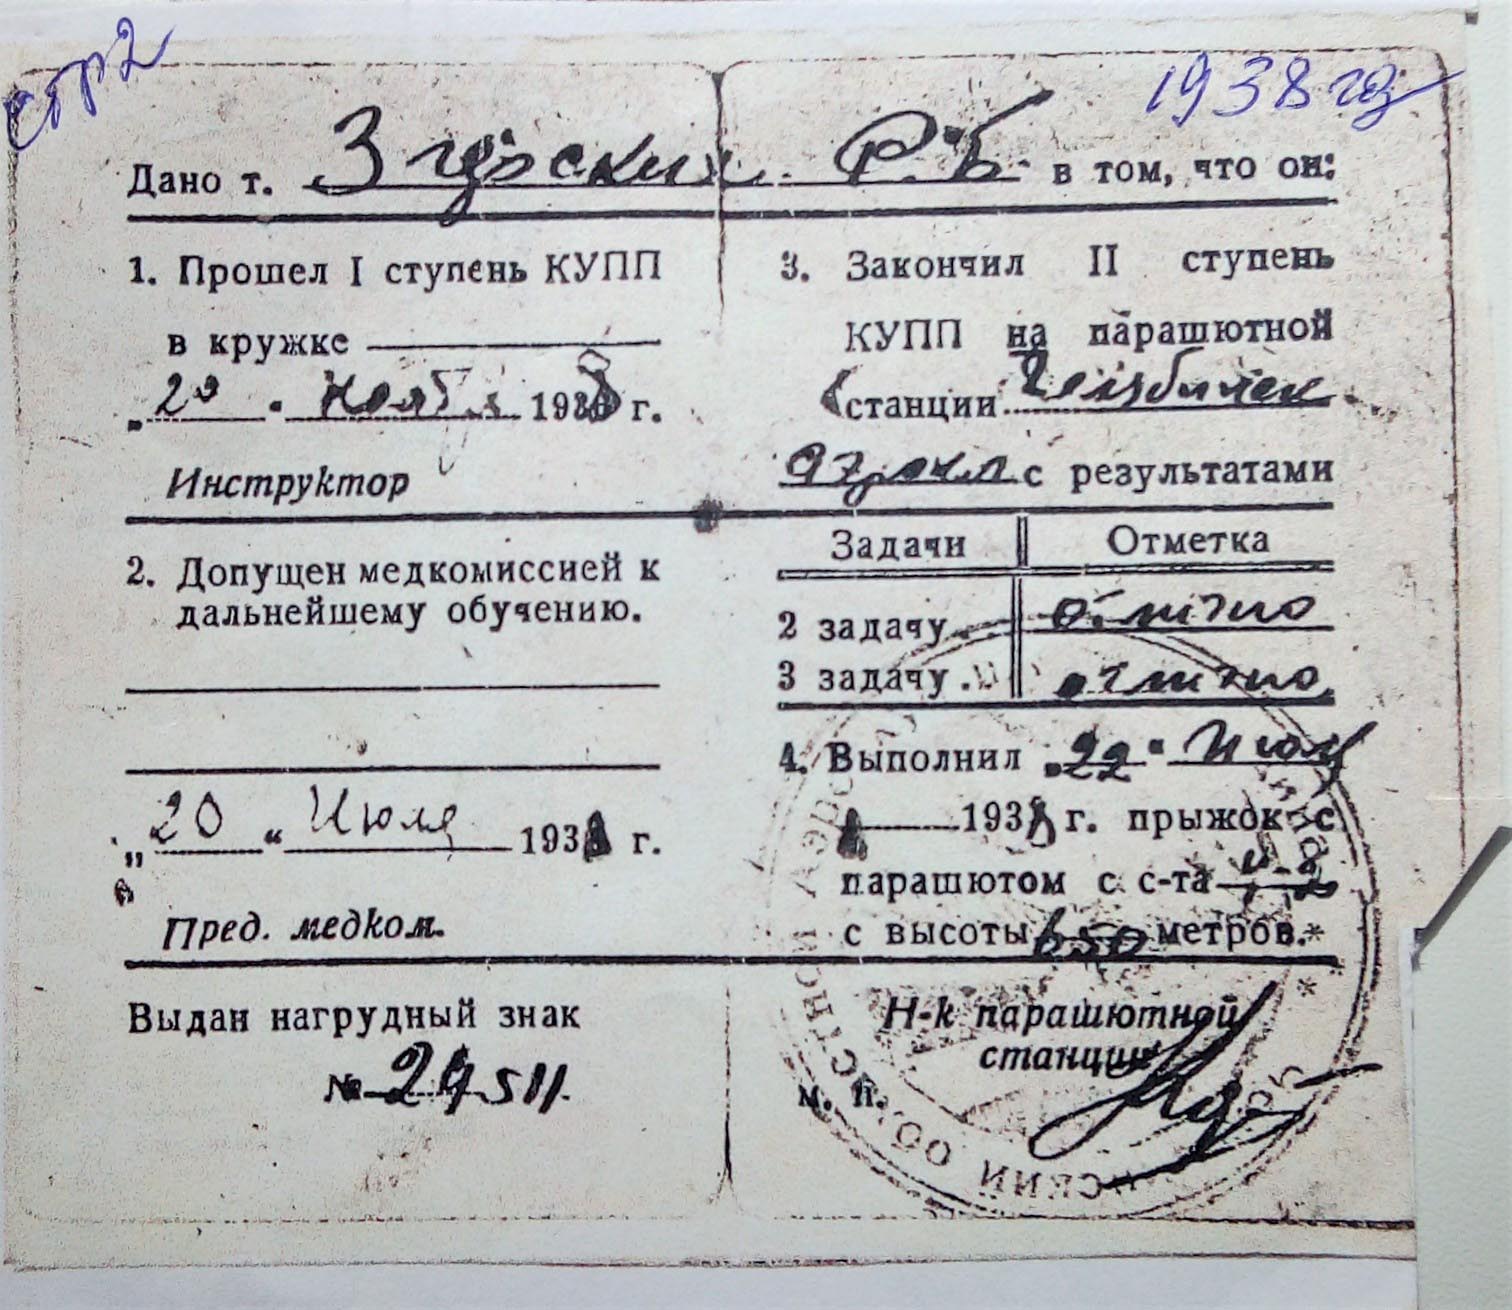 стр 2
1938 год
Дано т. Згурских Р.Б. в том, что он:
1. Прошел I ступень КУПП
в кружке
"20" 1938 г.
Инструктор
2. Допущен медкомиссией к
дальнейшему обучению.
"20" Июля 1938 г.
Пред. медком.
Выдан нагрудный знак
№ 24511
3. Закончил II ступень
КУПП на парашютной
станции
с результатами
Задачи Отметка
2 задачу. отлично
3 задачу. отлично
4. Выполнил "22" Июля
1938 г. прыжок с
парашютом с с-та У-2
с высоты 650 метров.*
Н-к парашютной
станции
м. п.